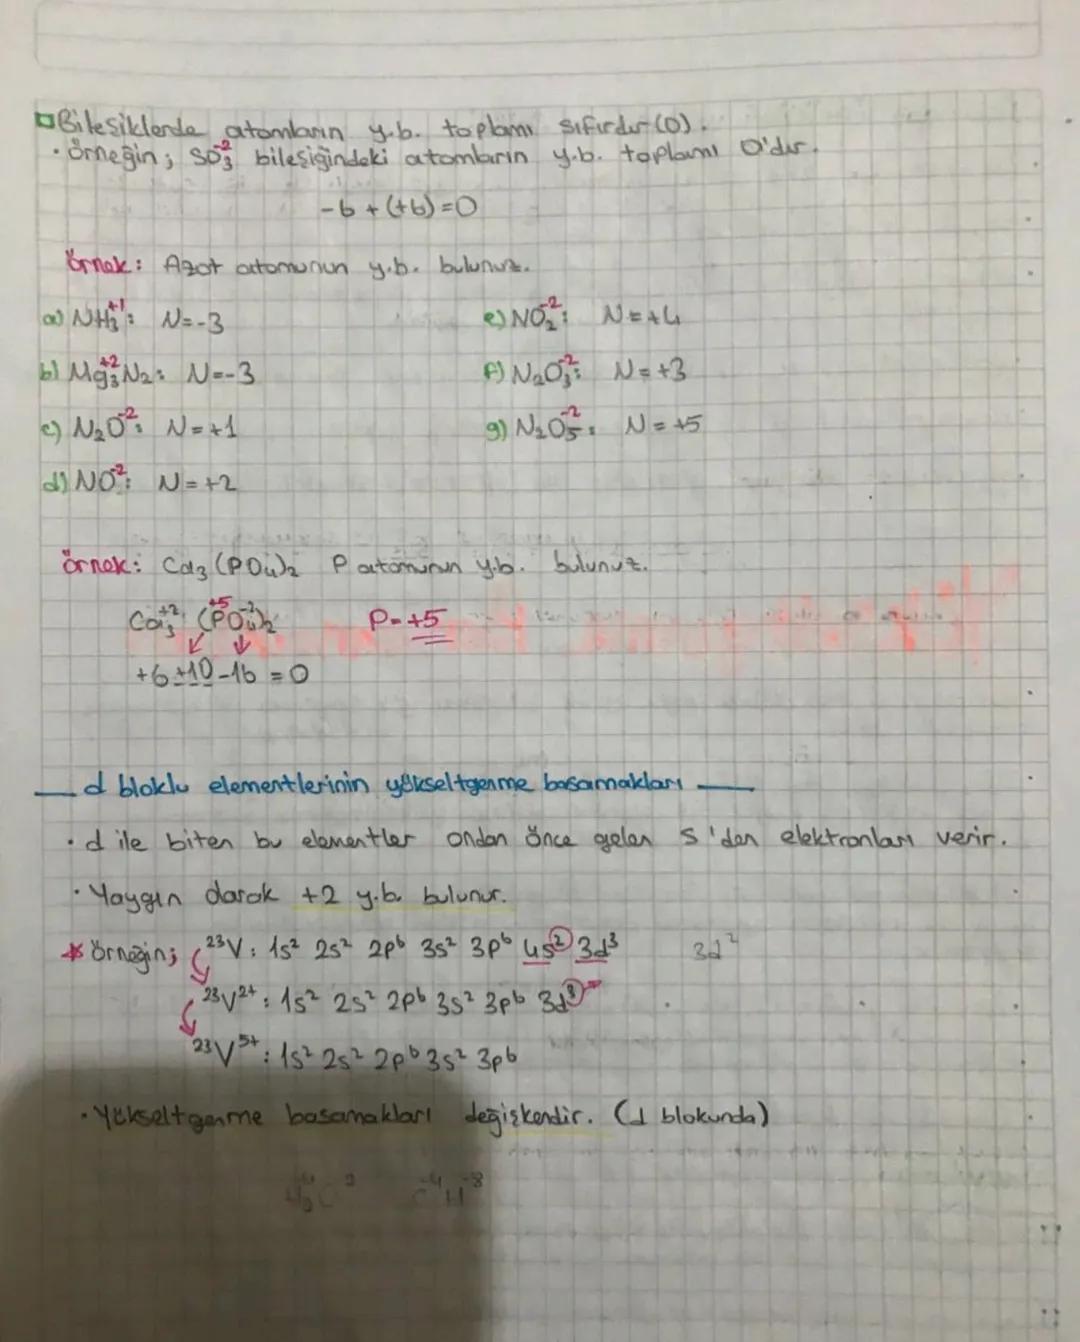 Bileşiklerde atomların y.b. toplamı sıfırdır (0).
• Örneğin; SO₃⁻² bileşiğindeki atomların y.b. toplamı 0'dır.
-6 + (+6) = 0
Örnek: Azot atomunun y.b. bulunuz.
a) NH₃⁺¹: N=-3
e) NO₂⁻²: N=+4
b) Mg₃⁺²N₂: N=-3
f) N₂O₃⁻²: N=+3
c) N₂O⁻²: N=+1
g) N₂O₅⁻²: N=+5
d) NO⁻²: N=+2
Örnek: Ca₃(PO₄)₂ P atomunun y.b. bulunuz.
Ca₃⁺² (P⁺⁵O₄⁻²)₂ P=+5
+6 +10 -16 = 0
d bloklu elementlerinin yükseltgenme basamakları
• d ile biten bu elementler ondan önce gelen s'den elektronları verir.
• Yaygın olarak +2 y.b. bulunur.
* Örneğin; ²³V: 1s² 2s² 2p⁶ 3s² 3p⁶ 4s² 3d³ 3d²
²³V²⁺: 1s² 2s² 2p⁶ 3s² 3p⁶ 3d³
²³V⁵⁺: 1s² 2s² 2p⁶ 3s² 3p⁶
• Yükseltgenme basamakları değişkendir. (d blokunda)